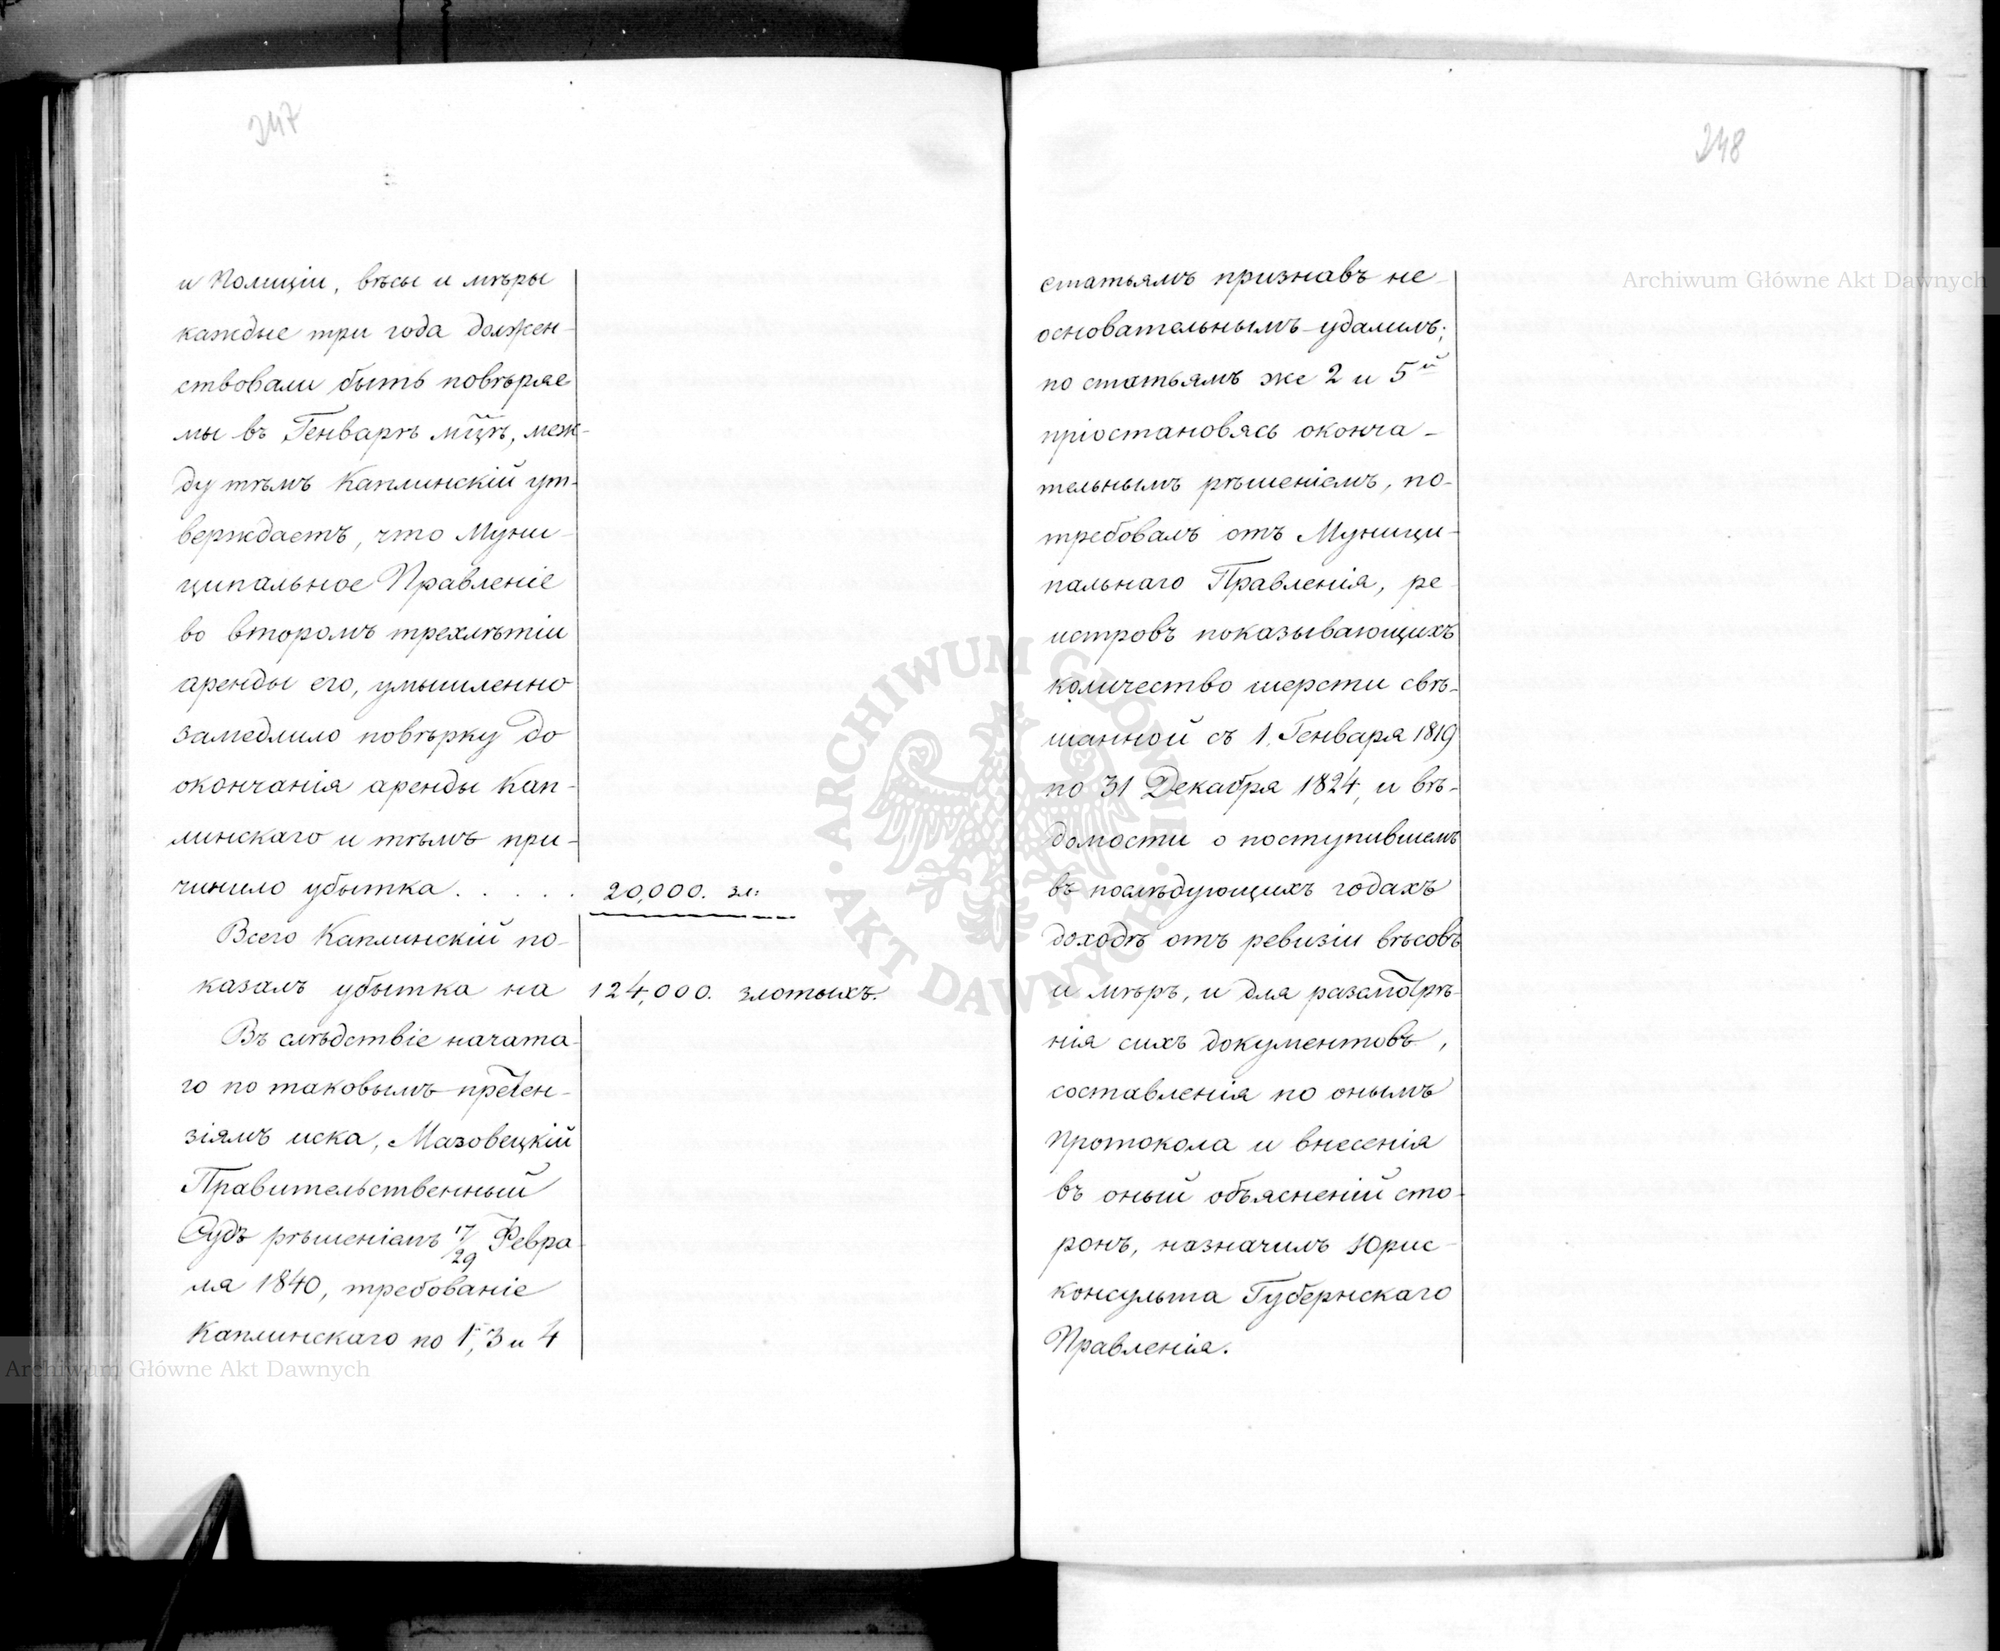 247
и Полиціи, вѣсы и мѣры
каждые три года должен-
ствовали быть повѣряе
мы въ Генварѣ мц̃ѣ, меж-
ду тѣмъ Каплинскій ут-
верждаетъ, что Муни-
ципальное Правленіе
во второмъ трехлѣтіи
аренды его, умышленно
замедлило повѣрку до
окончанія аренды Кап-
линскаго и тѣмъ при-
чинило убытка . . . . . 20,000. зл:
Всего Каплинскій по-
казалъ убытка на 124,000. злотыхъ.
Въ слѣдствіе начата-
го по таковымъ претен-
зіямъ иска, Мазовецкій
Правительственный
Судъ рѣшеніемъ 17/29 Февра-
ля 1840, требованіе
Каплинскаго по 1, 3 и 4
248
статьямъ признавъ не-
основательнымъ удалилъ;
по статьямъ же 2 и 5й
пріостановясь оконча-
тельнымъ рѣшеніемъ, по-
требовалъ отъ Муници-
пальнаго Правленія, ре-
истровъ показывающихъ
количество шерсти свѣ-
шанной съ 1. Генваря 1819
по 31 Декабря 1824, и вѣ-
домости о поступившемъ
въ послѣдующихъ годахъ
доходѣ отъ ревизіи вѣсовъ
и мѣръ, и для разсмотрѣ-
нія сихъ документовъ,
составленія по онымъ
Протокола и внесенія
въ оный объясненій сто-
ронъ, назначилъ Юрис-
консульта Губернскаго
Правленія.
Archiwum Główne Akt Dawnych
Archiwum Główne Akt Dawnych
ARCHIWUM GŁÓWNE AKT DAWNYCH